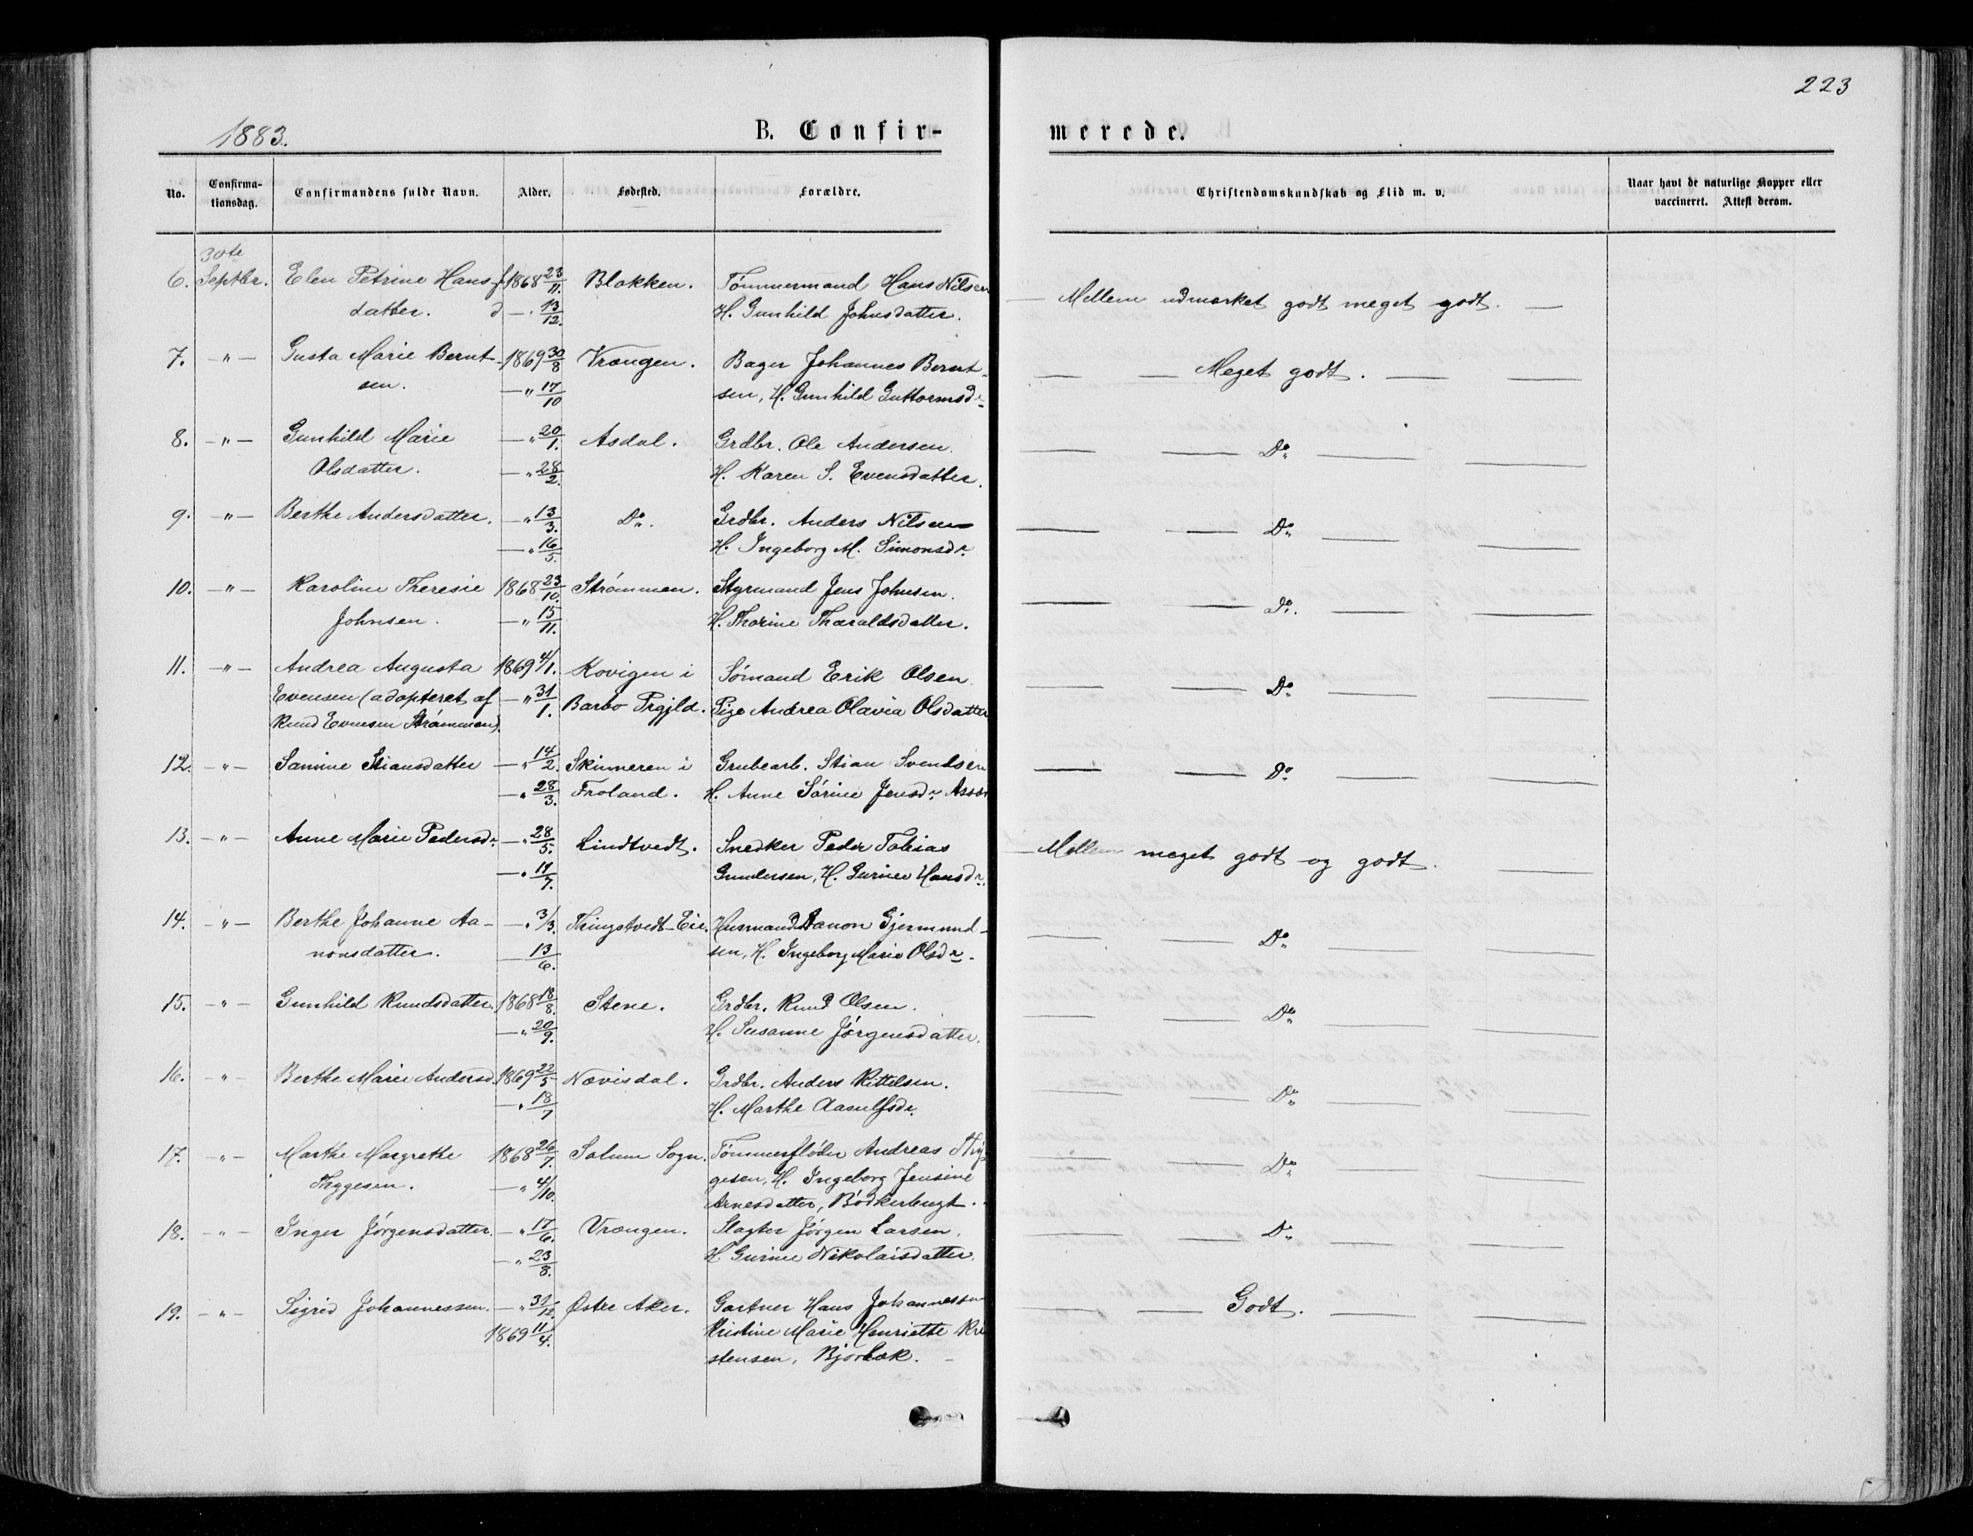 223
1883.
B. Confir-
merede.
No.
Confirma-
tionsdag.
Confirmandens fulde Navn.
Alder.
Fødested.
Forældre.
Christendomskundskab og Flid m. v.
Naar havt de naturlige Kopper eller
vaccineret. Attest derom.
30te
6. Septbr. Elen Petrine Hans- f 1868 23/11. Blokken. Tømmermand Hans Nilsen — Mellem udmærket godt meget godt. —
datter. d —„ 13/12. H. Gunhild Johnsdatter.
7. —„— Gusta Marie Bernt- 1869 30/8 Vrængen. Bager Johannes Bernt- — — Meget godt. — —
sen. —„ 17/10 sen, H. Gunhild Guttormsdr
8. —„— Gunhild Marie —„ 20/1. Asdal. Grdbr. Ole Andersen. — — Do — —
Olsdatter. —„ 28/2. H. Karen S. Evensdatter.
9. —„— Berthe Andersdatter. —„ 13/3. Do. Grdbr. Anders Nilsen — — Do — —
—„ 16/5. H. Ingeborg M. Simonsdr
10. —„— Karoline Theresie 1868 23/10. Strømmen. Styrmand Jens Johnsen. — — Do. — —
Johnsen. —„ 15/11. H. Thorine Tharaldsdatter.
11. —„— Andrea Augusta 1869 4/1. Kovigen i Sømand Erik Olsen. — — Do — —
Evensen (adopteret af —„ 31/1. Barbo Prgjld. Pige Andrea Olavia Olsdatter
Knud Evensen Strømmen).
12. —„— Samine Stiansdatter —„ 14/2. Skinneren i Grubearb. Stian Svendsen — — Do — —
—„ 28/3. Froland. H. Anne Sørine Jensdr
13. —„— Anne Marie Pedersdr —„ 28/5. Lindtvedt. Snedker Peder Tobias — Mellem meget godt og godt. —
—„ 11/7. Gundersen, H. Gurine Hansdr.
14. —„— Berthe Johanne Aa- —„ 3/3. Thingstvedt-Eie. Husmand Aanon Gjermund- — — Do — —
nonsdatter. — 13/6. sen, H. Ingeborg Marie Olsdr.
15. —„— Gunhild Knudsdatter. 1868 18/8. Stene. Grdbr. Knud Olsen. — — Do — —
—„ 20/9. H. Susanne Jørgensdatter.
16. —„— Berthe Marie Andersd. 1869 22/5 Nævisdal. Grdbr. Anders Kittelsen. — — Do — —
—„ 18/7 H. Marthe Aasulfsdr.
17. —„— Marthe Margrethe 1868 26/7. Solum Sogn. Tømmerfløder Andreas Thy- — — Do — —
Thygesen. —„ 4/10. gesen, H. Ingeborg Jensine
Arnesdatter, Bødkerbugt.
18. —„— Inger Jørgensdatter. —„ 17/6. Vrængen. Slagter Jørgen Larsen. — — Do — —
—„ 23/8. H. Gurine Nikolaisdatter.
19. —„— Sigrid Johannessen. —„ 31/12. Øster Aker. Gartner Hans Johannessen — — Godt. — —
1869 11/4. Kristine Marie Henriette Kri
stensen, Bjorbæk.